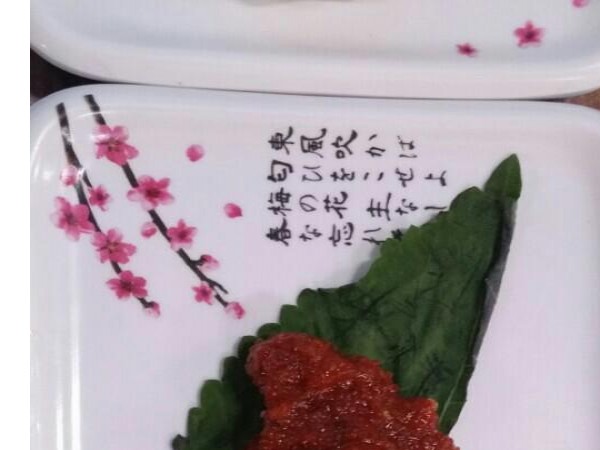 東風吹かば
匂ひをこせよ
梅の花主なし
春な忘れ